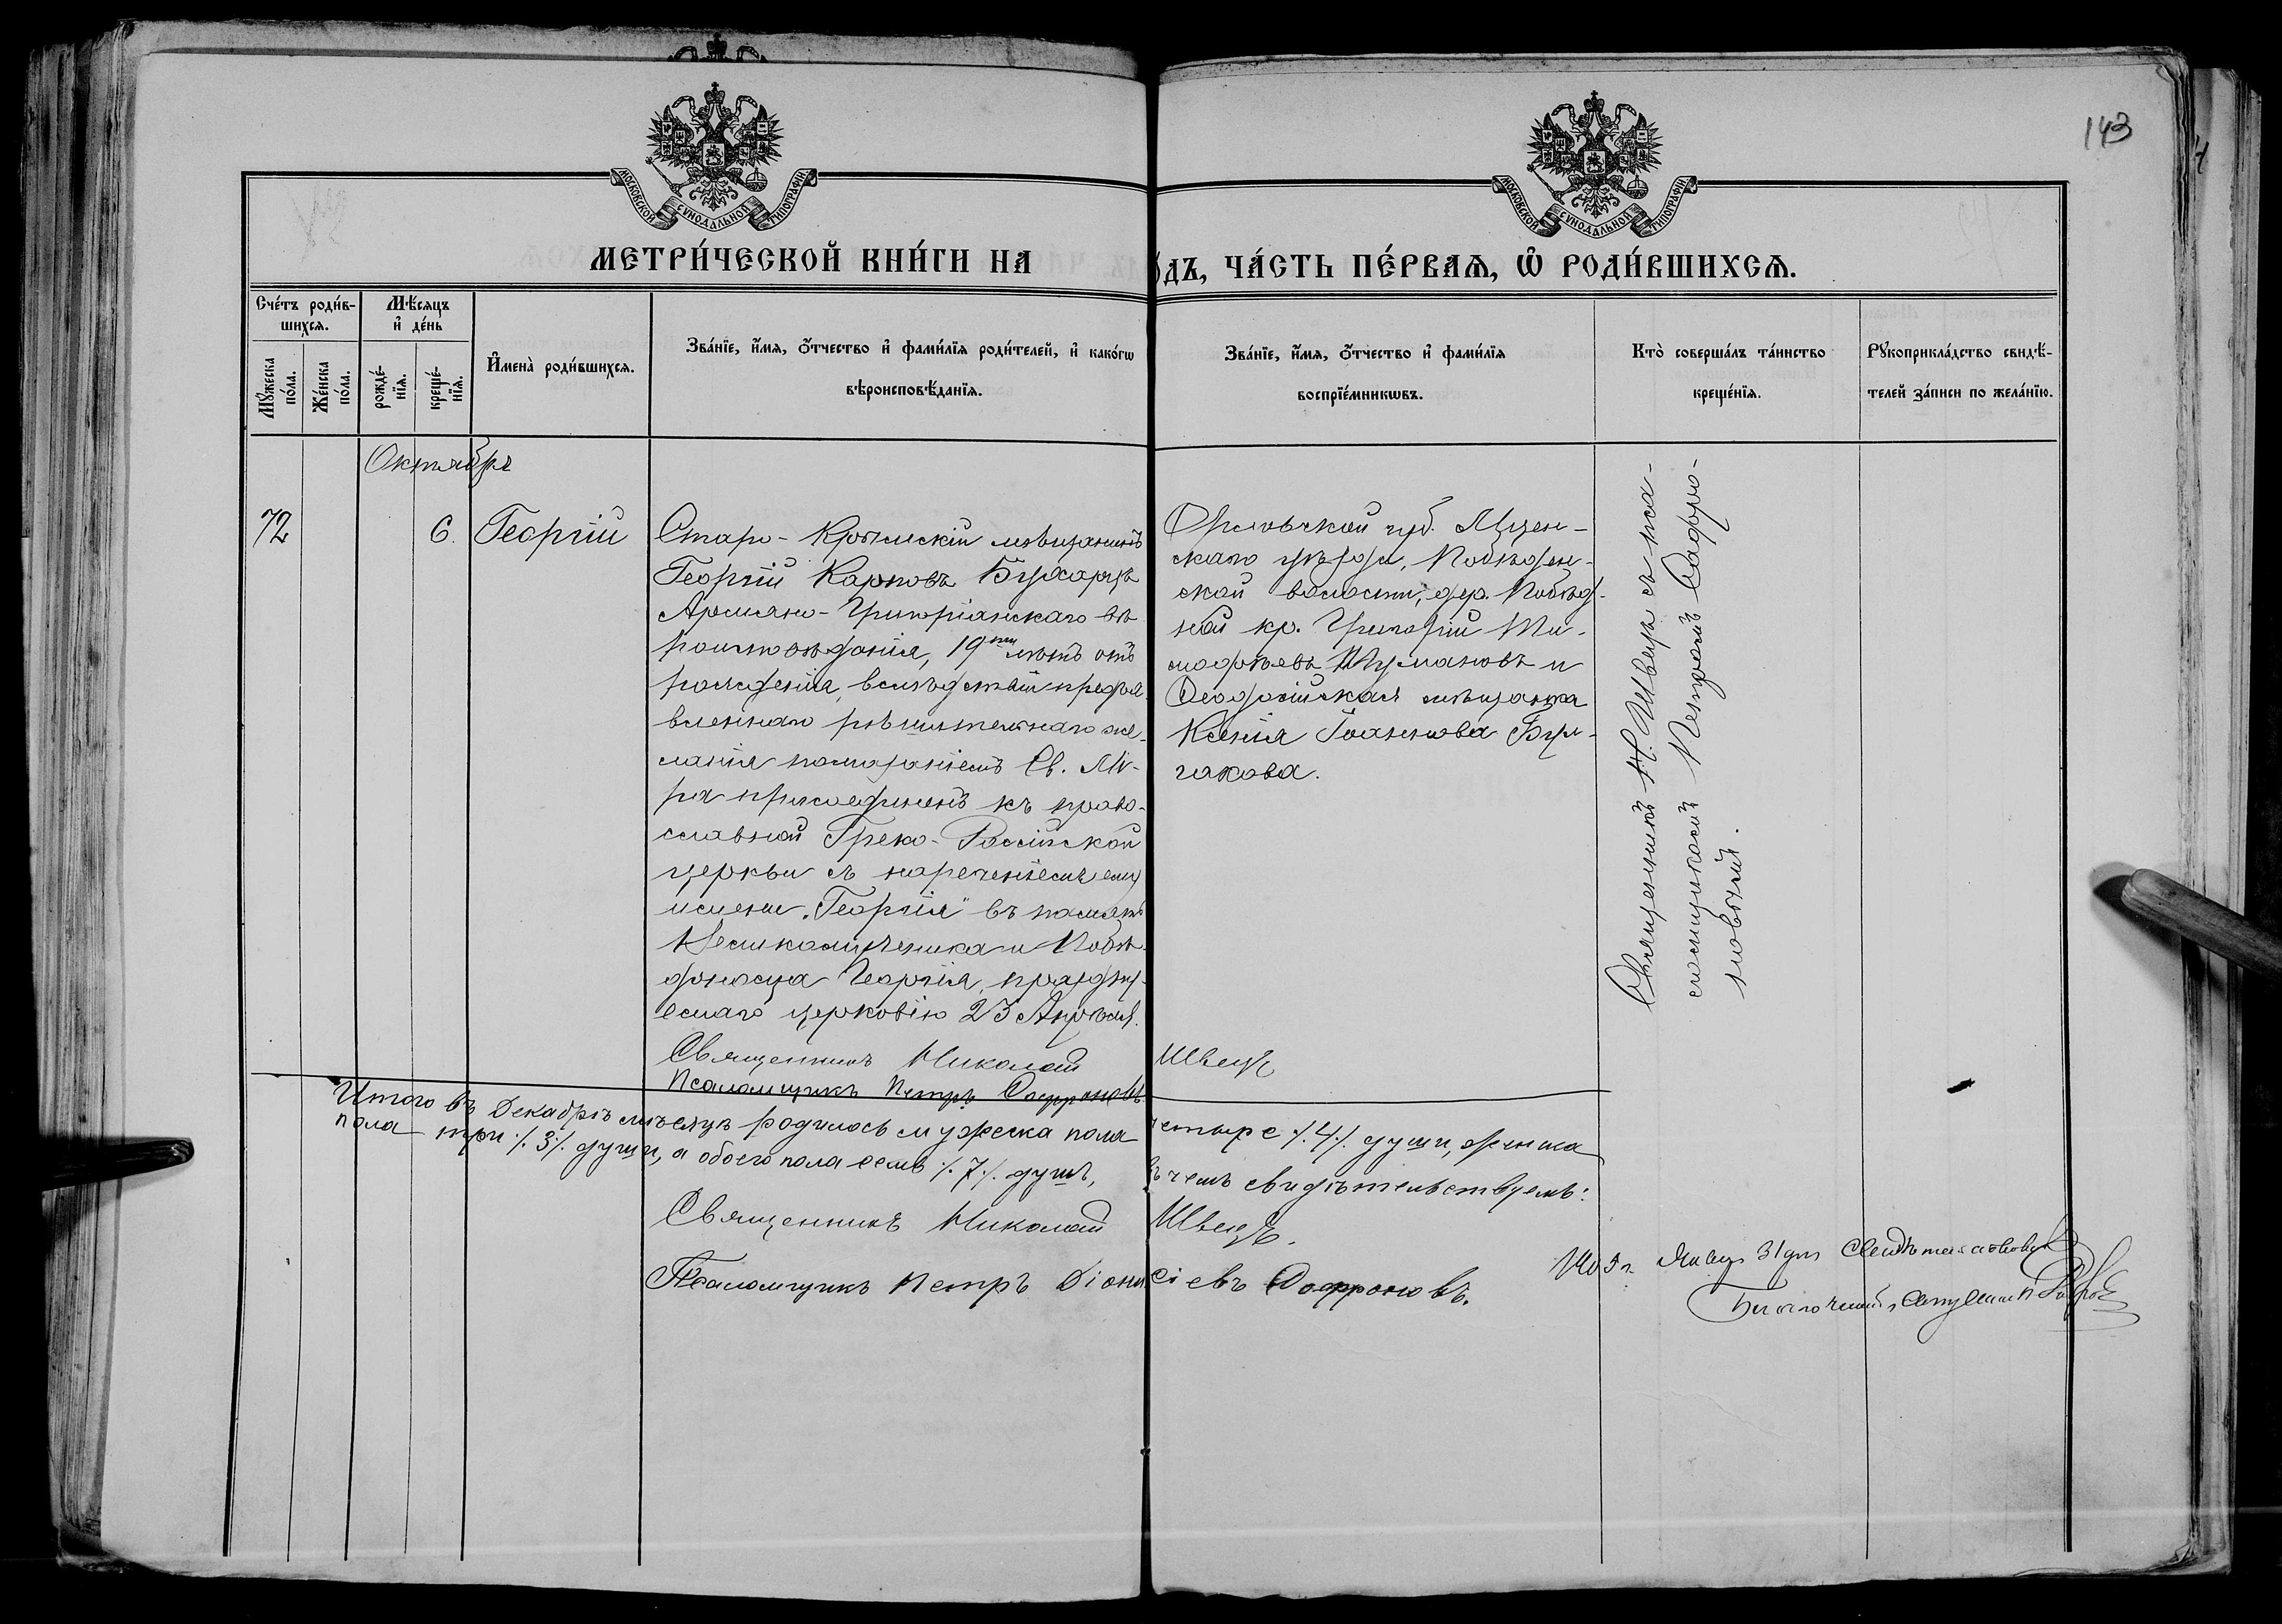 143
МОСКОВСКОЙ СѴНОДАЛЬНОЙ ТИПОГРАФІИ
МОСКОВСКОЙ СѴНОДАЛЬНОЙ ТИПОГРАФІИ
МЕТРИ́ЧЕСКОЙ КНИ́ГИ НА
О́ДЪ, ЧА́СТЬ ПЕ́РВАѦ, Ѡ҆ РОДИ́ВШИХСѦ.
Сче́тъ роди́в-
шихсѧ.
Мѣ́сѧцъ
и҆ де́нь
Мꙋ́жеска
по́ла.
Же́нска
по́ла.
рожде́-
нїѧ.
креще́-
нїѧ.
И҆мена̀ роди́вшихсѧ.
Зва́нїе, и҆́мѧ, ѻ҆́тчество и҆ фами́лїѧ роди́телей, и҆ како́гѡ
вѣроисповѣ́данїѧ.
Зва́нїе, и҆́мѧ, ѻ҆́тчество и҆ фами́лїѧ
воспрїе́мникѡвъ.
Кто̀ соверша́лъ та́инство
креще́нїѧ.
Рꙋкоприкла́дство свидѣ́-
телей за́писи по жела́нїю.
Октябрь
72
6.
Георгій
Старо-Крымскій мѣщанинъ
Георгій Карповъ Бухарцъ
Армяно-Григоріанскаго вѣ
роисповѣданія, 19ти лѣтъ отъ
рожденія, вслѣдствіи предъя-
вленнаго рѣшительнаго же-
ланія помазаніемъ Св. Мѵ-
ра присоединенъ къ право-
славной Греко-Россійской
церкви съ нареченіемъ ему
имени „Георгія" въ память
Великомученика и Побѣ-
доносца Георгія, праздну-
емаго церковію 23 Апрѣля.
Священникъ Николай Швецъ
Псаломщикъ Петръ Софроновъ.
Орловской губ. Мцен-
скаго уѣзда,
ской волости, дер.
ной кр. Григорій Ти-
мофѣевъ Шумановъ и
Ѳеодосійская мѣщанка
Ксенія Іоаннова Бур-
гакова.
Священникъ Н. Швецъ съ пса-
ломщикомъ Петромъ Софро-
новымъ.
Итого въ Декабрѣ мѣсяцѣ родилось мужеска пола четыре ∕.4∕. души, женска
пола три ∕.3∕. души, а обоего пола семь ∕.7∕. душъ, въ чемъ свидѣтельствуемъ:
Священникъ Николай Швецъ.
Псаломщикъ Петръ Діонисіевъ Софроновъ.
Янвр 31 дня Свидѣтельствовалъ
Благочинный